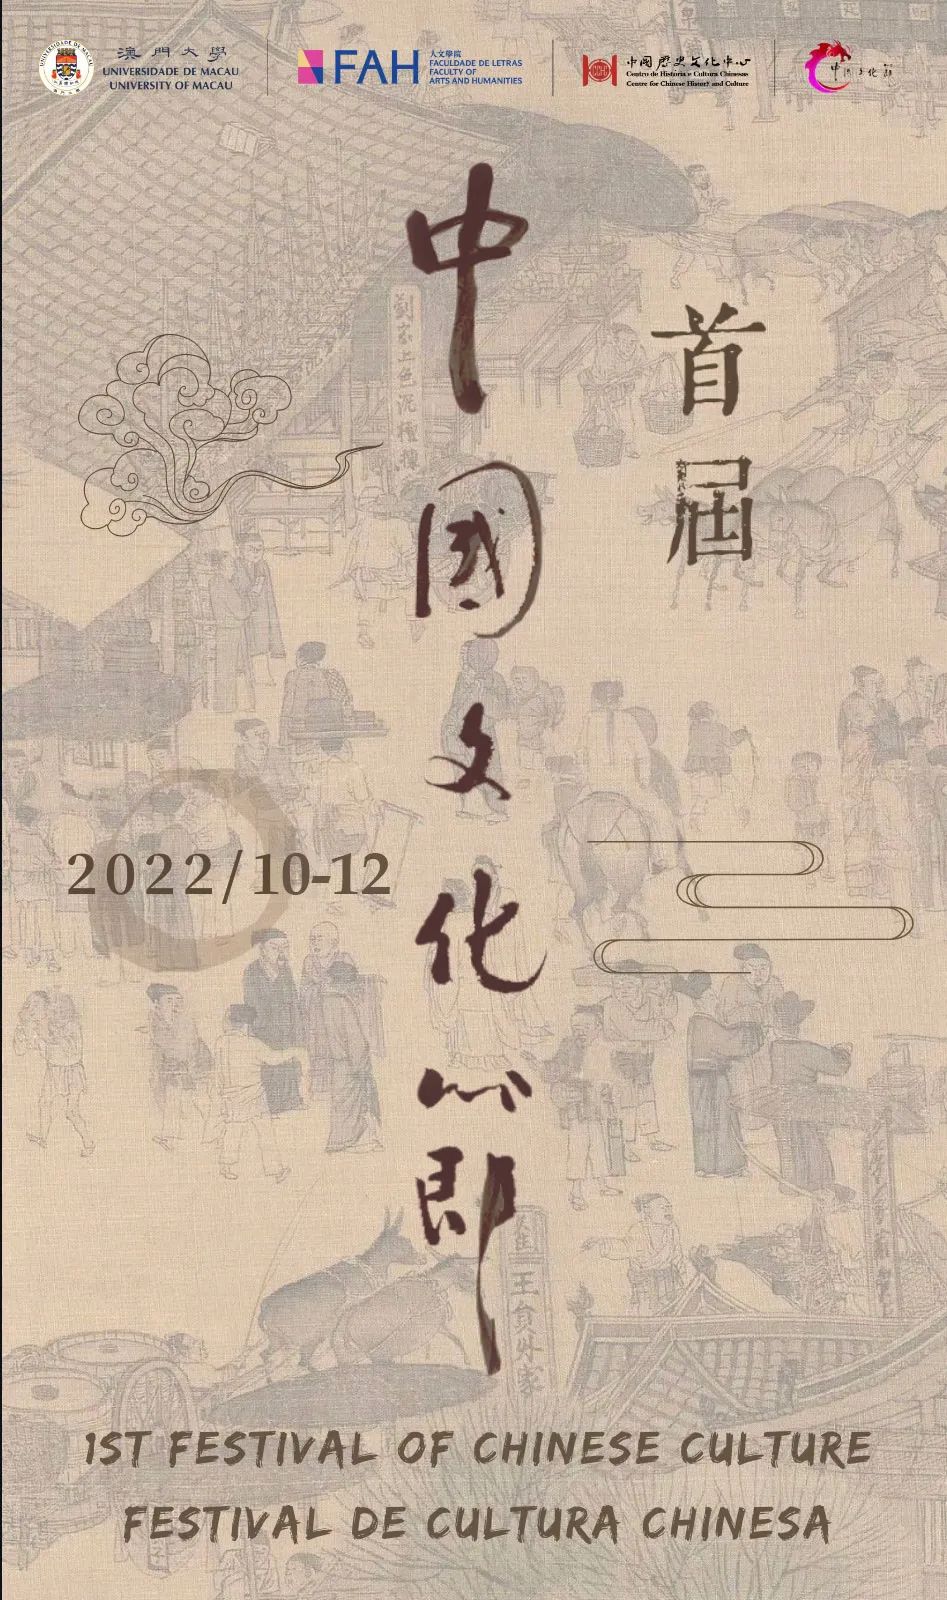 澳門大學
UNIVERSIDADE DE MACAU
UNIVERSITY OF MACAU
FAH
人文學院
FACULDADE DE LETRAS
FACULTY OF
ARTS AND HUMANITIES
中國歷史文化中心
Centro de História e Cultura Chinesas
Centre for Chinese History and Culture
中國文化節
首屆
中國文化節
劉家上色沉檀揀
2022/10-12
王員外家
1ST FESTIVAL OF CHINESE CULTURE
FESTIVAL DE CULTURA CHINESA